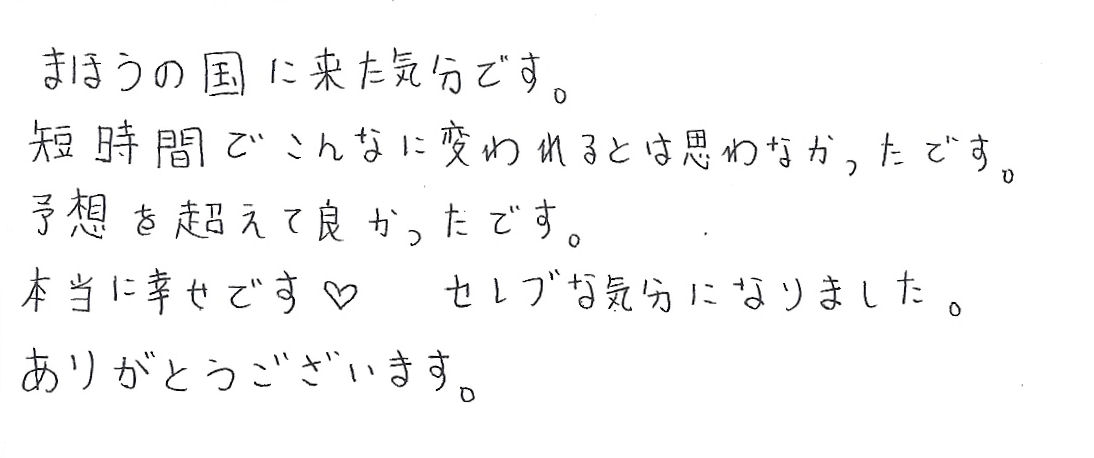 まほうの国に来た気分です。
短時間でこんなに変われるとは思わなかったです。
予想を超えて良かったです。
本当に幸せです♡　セレブな気分になりました。
ありがとうございます。